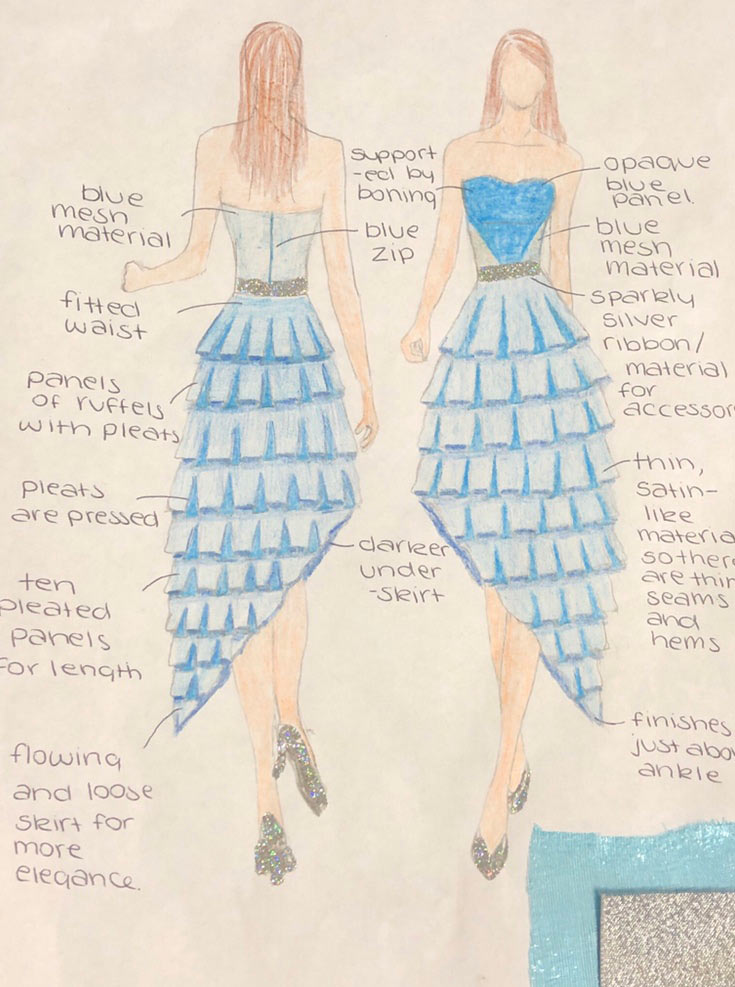 blue
mesh
material
fitted
waist
panels
of ruffels
with pleats
pleats
are pressed
ten
pleated
panels
for length
flowing
and loose
skirt for
more
elegance.
support
-ed by
boning
blue
zip
darker
under
-skirt
opaque
blue
panel.
blue
mesh
material
sparkly
silver
ribbon/
material
for
accessor
thin,
satin-
like
materia
so there
are thin
seams
and
hems
finishes
just abo
ankle